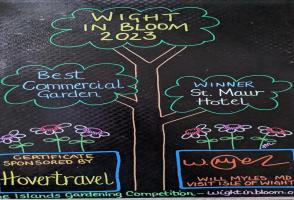 WIGHT
IN BLOOM
2023
Best
Commercial
Garden
WINNER
St. Maur
Hotel
CERTIFICATE
SPONSORED BY
Hovertravel
WILL MYLES, MD
VISIT ISLE OF WIGHT
e Islands Gardening Competition – wightinbloom.o